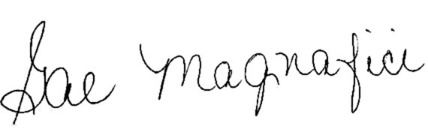 Gae Magnafici